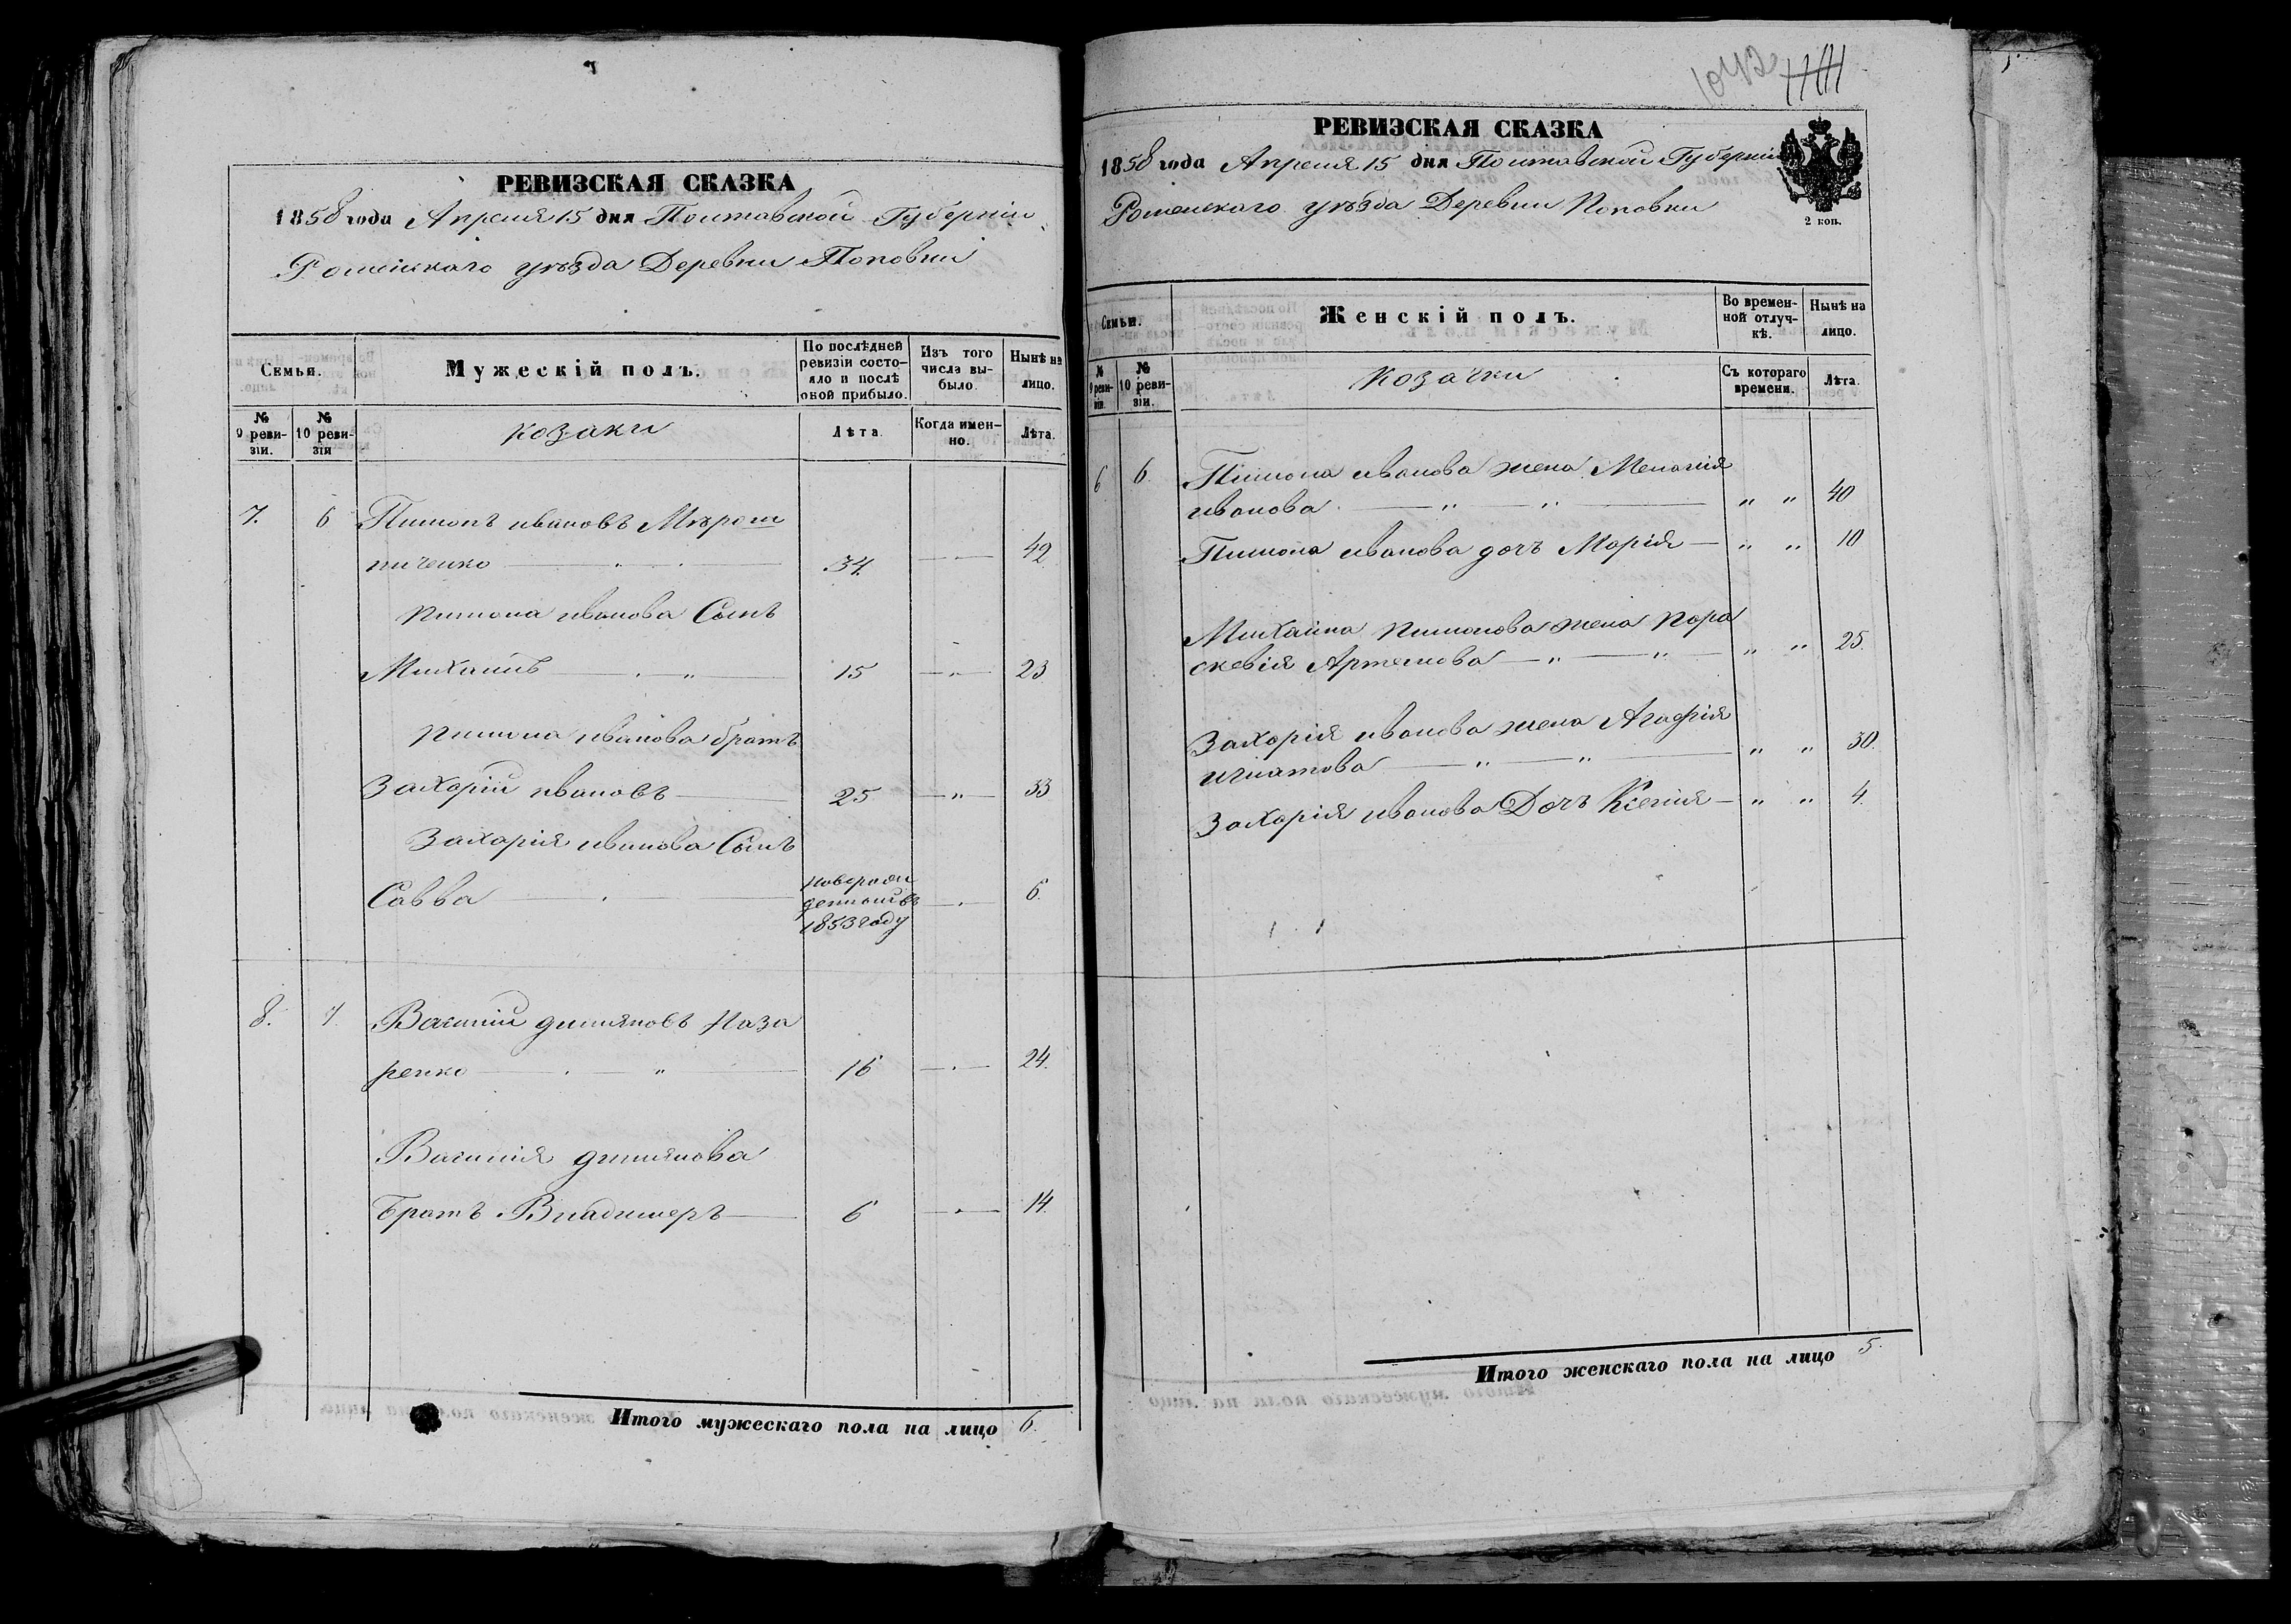 РЕВИЗСКАЯ СКАЗКА
1858 года Апреля 15 дня Полтавской Губерніи
Роменскаго уѣзда Деревни Поповки
Семьи.
Мужескій полъ.
По послѣдней ревизіи состояло и послѣ оной прибыло.
Изъ того числа выбыло.
Нынѣ на лицо.
№ 9 ревизіи.
№ 10 ревизіи
козаки
Лѣта.
Когда именно.
Лѣта.
7. 6 Пимонъ ивановъ Мѣрош
ниченко 34. 42
пимона иванова Сынъ
Михаилъ 15 23
пимона иванова братъ
Захарій ивановъ 25 33
Захарія иванова Сынъ
Савва новорожденный въ 1853 году 6.
8. 7. Василій демяновъ Наза
ренко 16 24.
Василія демянова
Братъ Владимеръ 6 14.
Итого мужескаго пола на лицо 6.
1042
РЕВИЗСКАЯ СКАЗКА
1858 года Апреля 15 дня Полтавской Губерніи
Роменскаго уѣзда Деревни Поповки
2 коп.
Семьи.
Женскій полъ.
Во временной отлучкѣ.
Нынѣ на лицо.
№ 9 ревизіи.
№ 10 ревизіи.
козачки
Съ котораго времени.
Лѣта.
6 6. Пимона иванова жена Меланія
иванова " " 40
Пимона иванова дочъ Марія " " 10
Михайла пимонова жена пара
скевія Артемова " " 25.
Захарія иванова жена Агафія
игнатова " " 30.
Захарія иванова Дочъ Ксенія " " 4.
Итого женскаго пола на лицо 5.